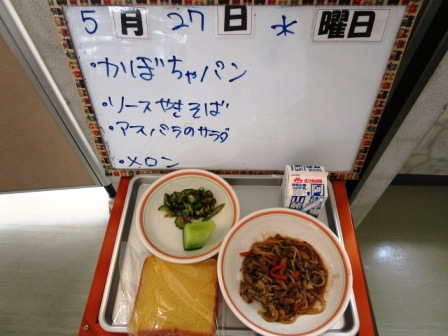 5月27日水曜日
・かぼちゃパン
・ソースやきそば
・アスパラのサラダ
・メロン